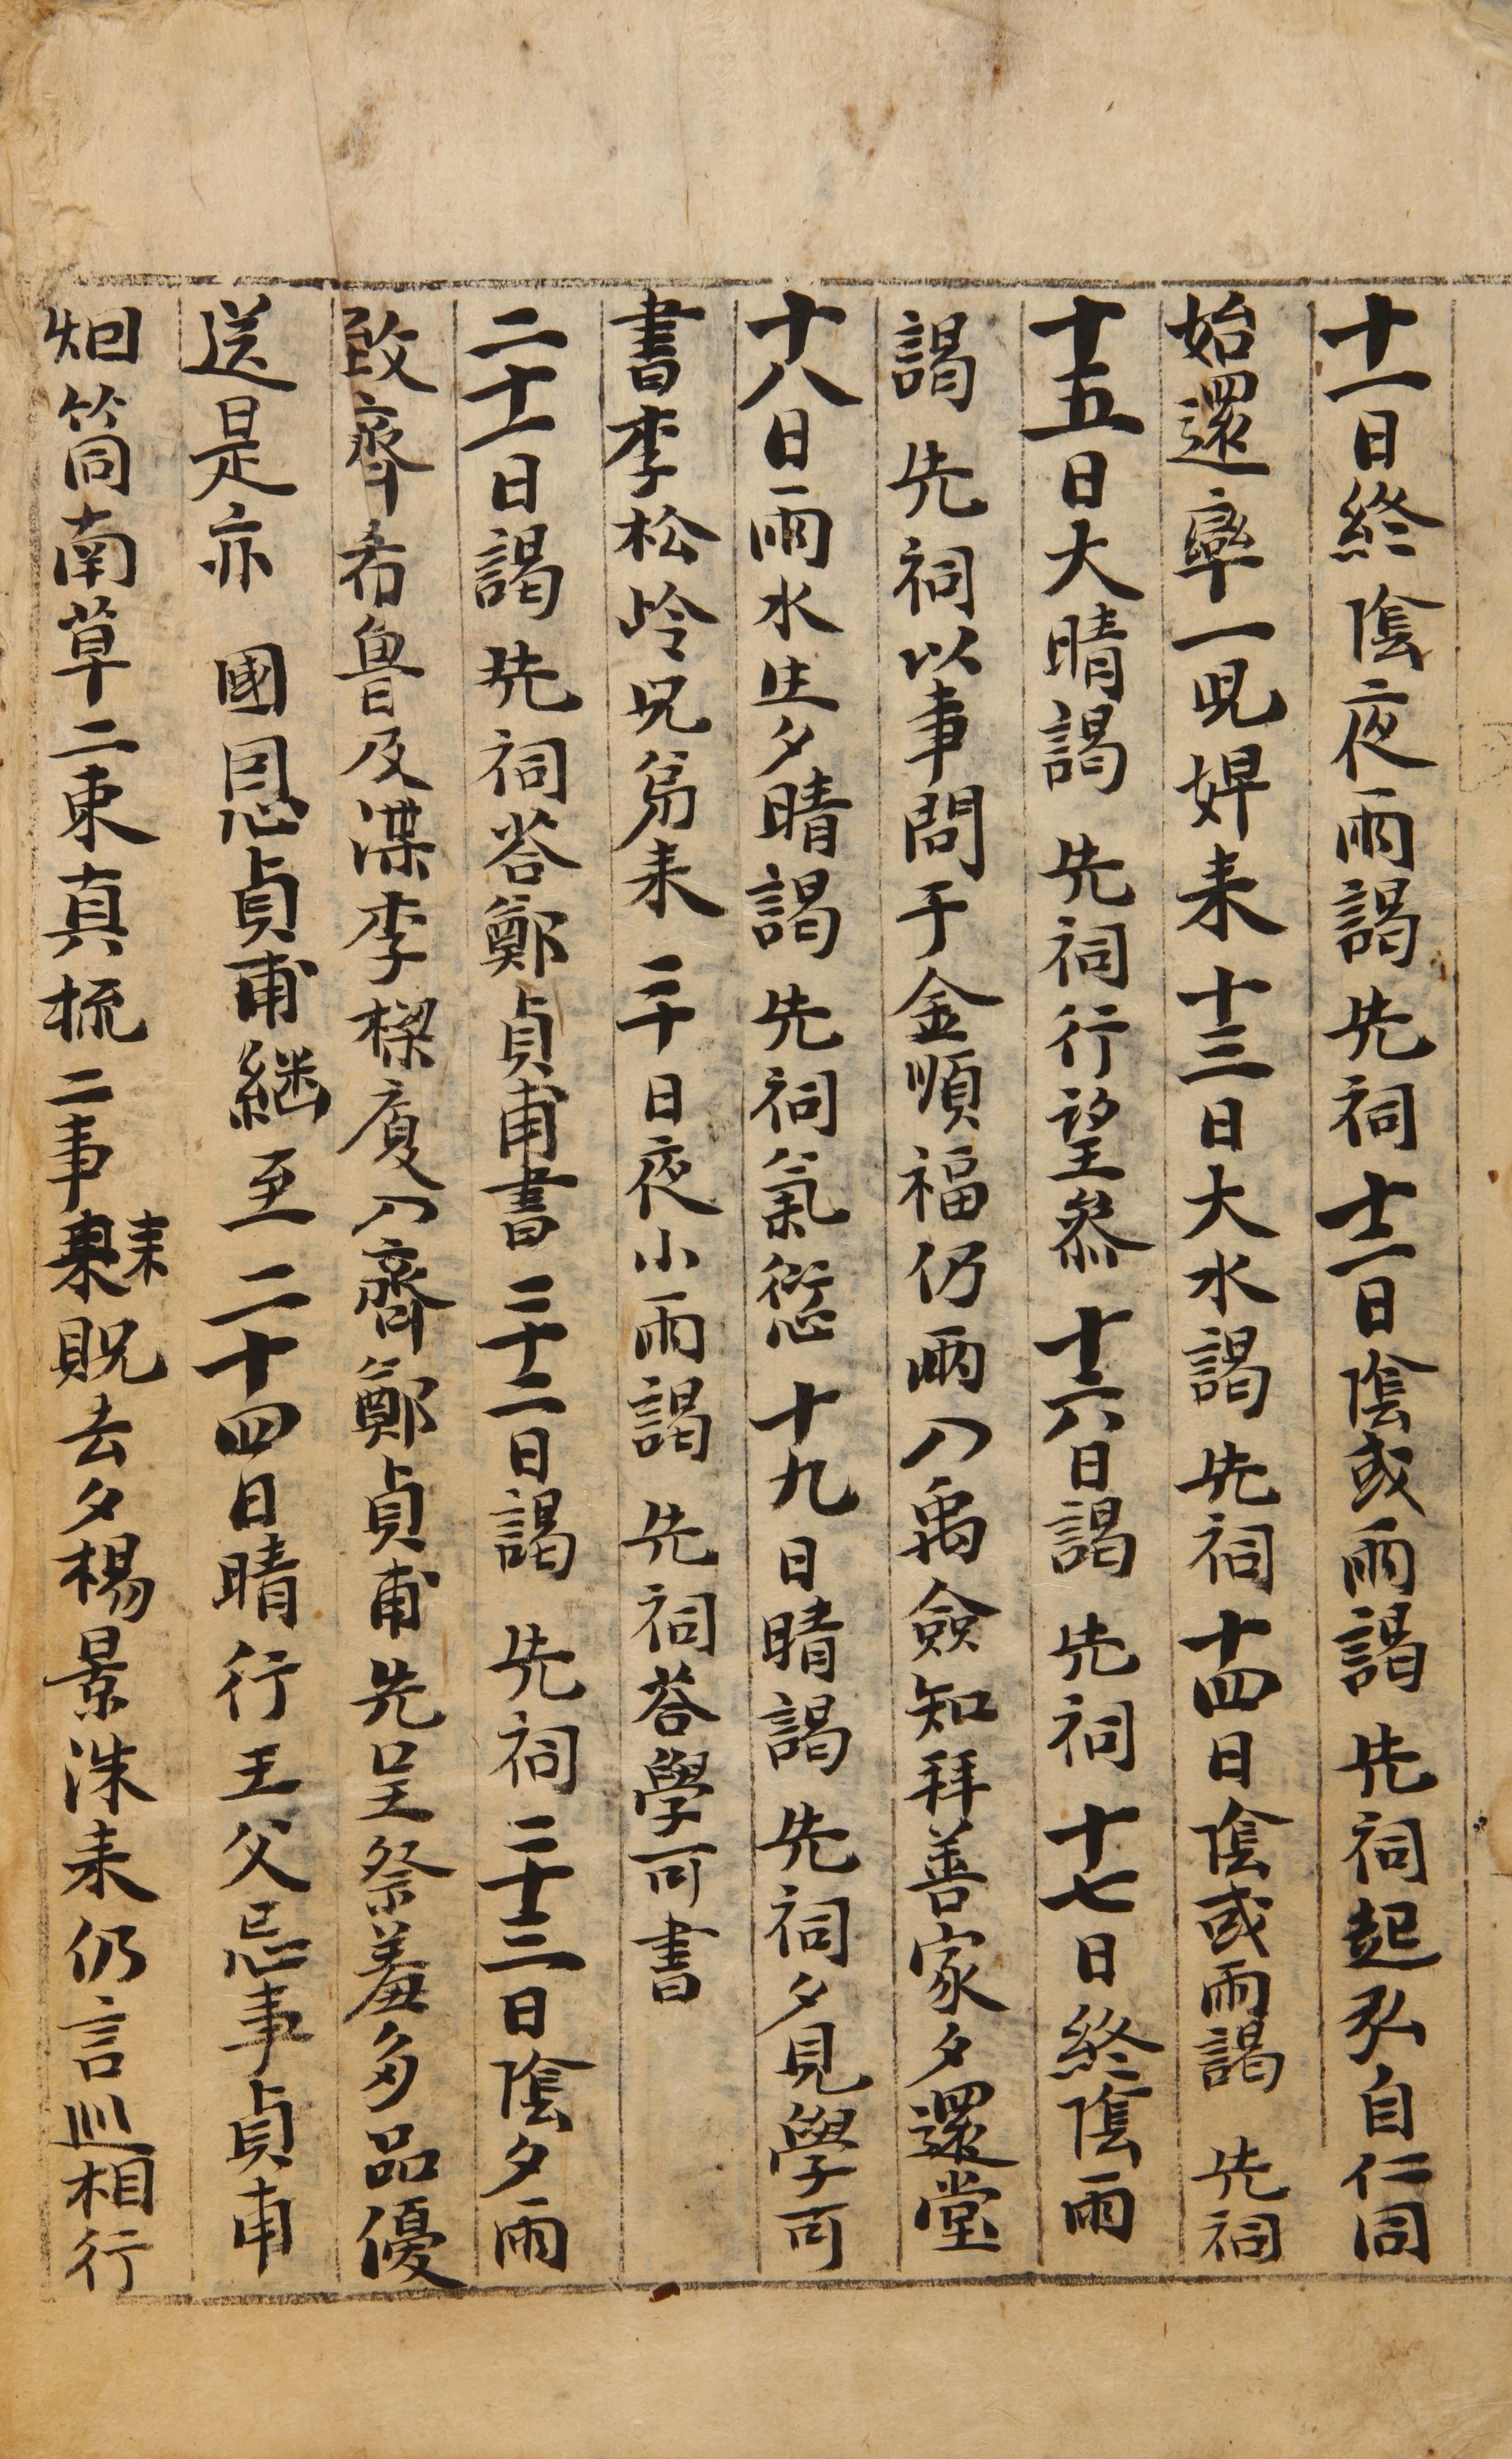 十一日終陰夜雨謁 先祠 十二日陰或雨謁 先祠起弘自仁同
始還率一児婢来 十三日大水謁 先祠 十四日陰或雨謁 先祠
十五日大晴謁 先祠行望叅 十六日謁 先祠 十七日終陰雨
謁 先祠以事問于金順福仍雨入禹僉知拜善家夕還堂
十八日雨水止夕晴謁 先祠氣愆 十九日晴謁 先祠夕見學可
書李松岭兄弟来 二十日夜小雨謁 先祠答學可書
二十一日謁 先祠答鄭貞甫書 二十二日謁 先祠 二十三日陰夕雨
致齊希魯及渫李樑廈入齊鄭貞甫先呈祭羞多品優
送是亦 國恩貞甫継至 二十四日晴行王父忌事貞甫
烟筒南草二束真梳二事来貺去夕楊景洙来仍言巡相行